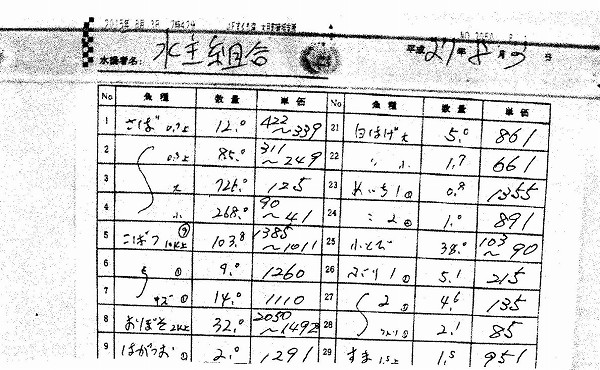 2015年 8月 3日
NO.3050
水揚者名: 水主組合
平成 27年 8月 3日
No 魚種 数量 単価 No 魚種 数量 単価
1 さば 0.7上 12.0 422〜339 21 白はげ大 5.0 861
2 0.3上 85.0 311〜249 22 〃 小 1.7 661
3 大 725.0 125 23 めいち1 0.8 1355
4 小 268.0 90〜41 24 〃 2 1.0 891
5 こばつ 10K上 103.8 1385〜1011 25 小とび 38.0 103〜90
6 9.0 1260 26 1 5.1 215
7 14.0 1110 27 2 4.6 135
8 2K上 32.0 2050〜1492 28 2.1 85
9 はがつお 2.0 1291 29 すま 1.5上 1.5 951